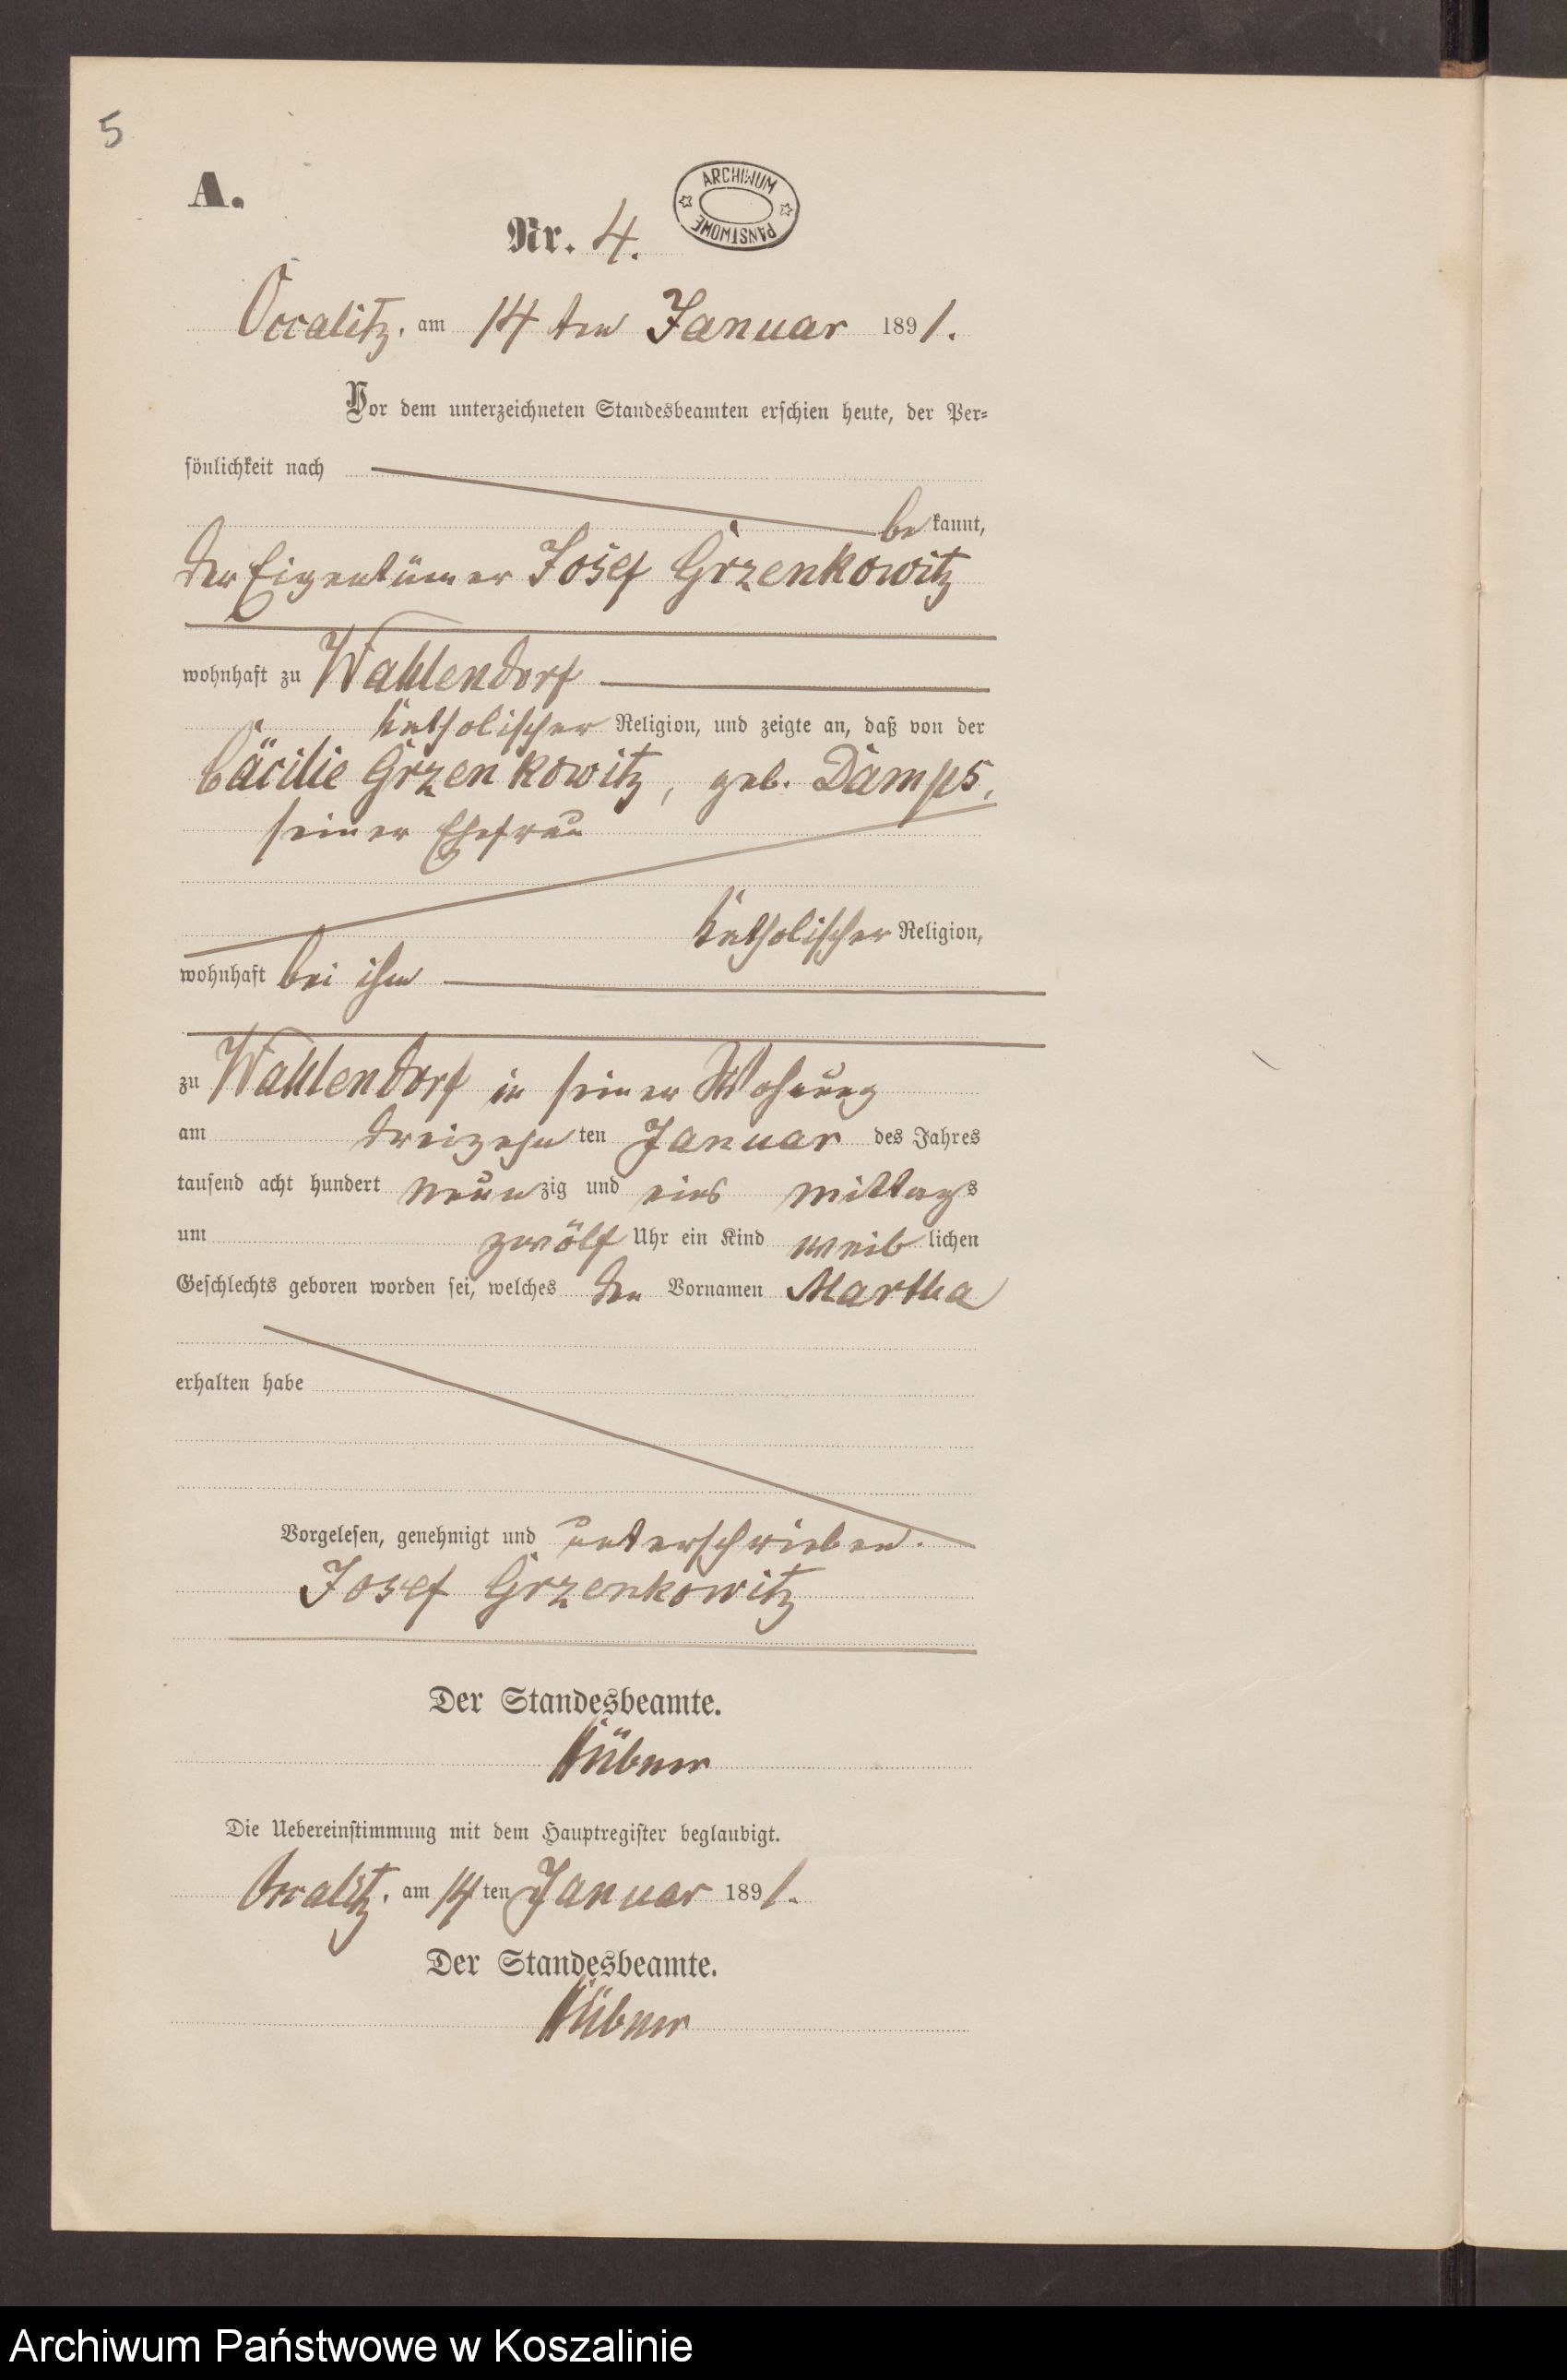 5
A.
ARCHIWUM PAŃSTWOWE
Nr. 4.
Occalitz, am 14 ten Januar 1891.
Vor dem unterzeichneten Standesbeamten erschien heute, der Per-
sönlichkeit nach
bekannt,
der Eigentümer Josef Grzenkowitz
wohnhaft zu Wahlendorf
katholischer Religion, und zeigte an, daß von der
Cäcilie Grzenkowitz, geb. Damps,
seiner Ehefrau
katholischer Religion,
wohnhaft bei ihm
zu Wahlendorf in seiner Wohnung
am dreizehnten Januar des Jahres
tausend acht hundert neunzig und eins mittags
um zwölf Uhr ein Kind weiblichen
Geschlechts geboren worden sei, welches den Vornamen Martha
erhalten habe
Vorgelesen, genehmigt und unterschrieben.
Josef Grzenkowitz
Der Standesbeamte.
Hübner
Die Uebereinstimmung mit dem Hauptregister beglaubigt.
Occalitz, am 14 ten Januar 1891.
Der Standesbeamte.
Hübner
Archiwum Państwowe w Koszalinie